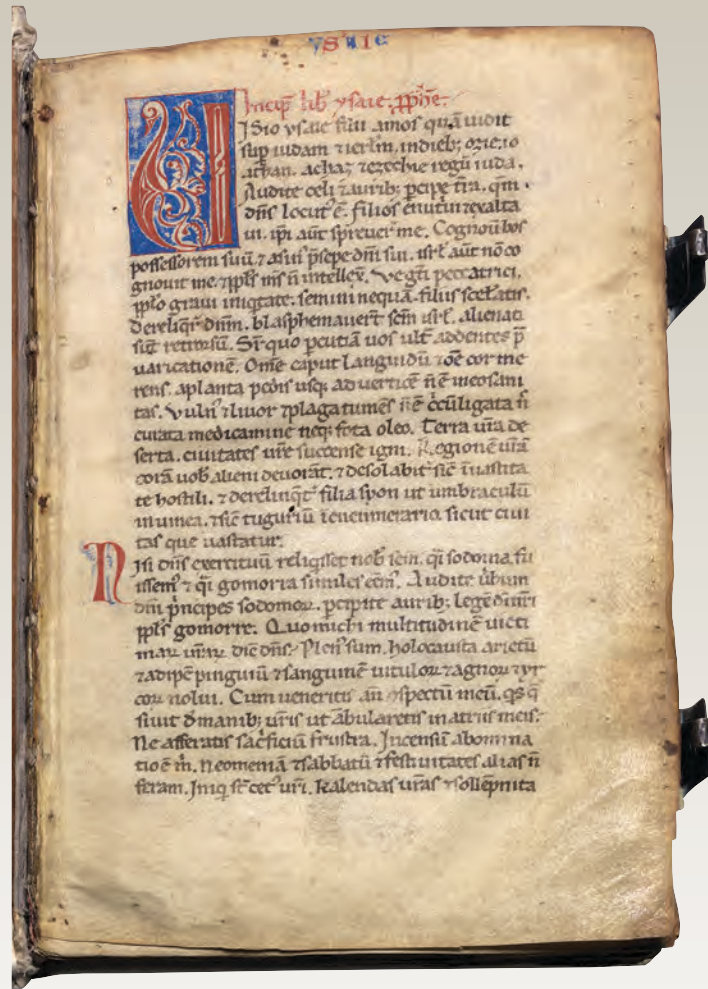 YSAIE
Incip̄ lib̄ ysaie. ꝓph̄e.
ISio ysaie filii amos quā uidit
sup iudam ⁊ ierl̄m. indieb; ozie. io
athan. achaz ⁊ezechie regū iuda.
Audite celi ⁊aurib; ꝑcipe t̄ra. qm̄
dn̄s locut᾽ ē. filios enutriui ⁊exalta
ui. ip̄i aūt spreuer̄ me. Cognouit bos
possessorem suū ⁊ asin᾽ p̄sepe dn̄i sui. isrl̄ aūt nō co
gnouit me. ⁊ppl̄s ms̄ n̄ intellex̄. Ve gēti peccatrici.
ppl̄o graui iniqtate. semini nequā. filiis scel̄atis.
Dereliq̄r dn̄m. blasphemauer̄t sc̄m isrl̄. alienati
sūt retrorsū. Sr̄ quo ꝑcutiā uos ult̄ addentes p̄
uaricationē. Om̄e caput languidū ⁊oē cor me
rens. aplanta pedis usq; ad uerticē n̄ ē ineo sani
tas. Vuln᾽ ⁊liuor ⁊plaga tumēs n̄ ē c̄cūligata n̄
curata medicamine neq; fota oleo. Terra ur̄a de
serta. ciuitates ur̄e succense igni. Regionē ur̄ā
corā uob̄ alieni deuorāt. ⁊ desolabit᾽ sic̄ iuastita
te hostili. ⁊ derelinqt᾽ filia syon ut umbraculū
inuinea. ⁊sic̄ tuguriū icucumerario. sicut ciui
tas que uastatur.
Nisi dn̄s exercituū reliq̄sset nob̄ sem̄. q̄i sodoma fu
issem᾽ ⁊ q̄i gomorra similes eēm᾽. Audite u̇bum
dn̄i p̄ncipes sodomoꝝ. ꝑcipite aurib; legē di nr̄i
ppl̄s gomorre. Quo michi multitudinē uicti
maꝝ ur̄aꝝ dic̄ dn̄s. Plen᾽ sum. holocausta arietū
⁊adipē pinguiū ⁊sanguinē uituloꝝ ⁊agnoꝝ ⁊yr
coꝝ nolui. Cum ueneritis an̄ ↄspectū meū. q̄s q̄
siuit d̄ manib; ur̄is ut ābularetis inatriis meis.
Ne afferatis sac̄ficiū frustra. Incensū abomina
tio ē m̄. Neomeniā ⁊sabbatū ⁊festiuitates alias n̄
feram. Iniq̄ st̄ cet᾽ ur̄i. Kalendas ur̄as ⁊sollēpnita